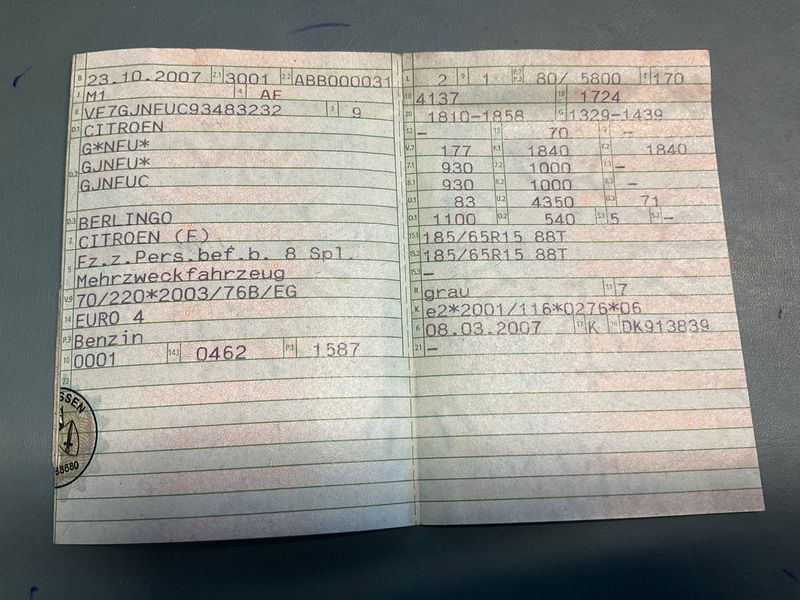 B 23.10.2007 2.1 3001 2.2 ABB000031
J M1 4 AF
E VF7GJNFUC93483232 3 9
D.1 CITROEN
G*NFU*
D.2 GJNFU*
GJNFUC
D.3 BERLINGO
2 CITROEN (F)
5 Fz.z.Pers.bef.b. 8 Spl.
Mehrzweckfahrzeug
V.9 70/220*2003/76B/EG
14 EURO 4
P.3 Benzin
10 0001 14.1 0462 P.1 1587
22
SSEN
L 2 9 1 P.2 P.4 80/ 5800 T 170
18 4137 19 1724
20 1810-1858 G 1329-1439
12 - 13 70 Q --
V.7 177 F.1 1840 F.2 1840
7.1 930 7.2 1000 7.3 -
8.1 930 8.2 1000 8.3 -
U.1 83 U.2 4350 U.3 71
O.1 1100 O.2 540 S.1 5 S.2 -
15.1 185/65R15 88T
15.2 185/65R15 88T
15.3 -
R grau 11 7
K e2*2001/116*0276*06
6 08.03.2007 17 K 16 DK913839
21 -